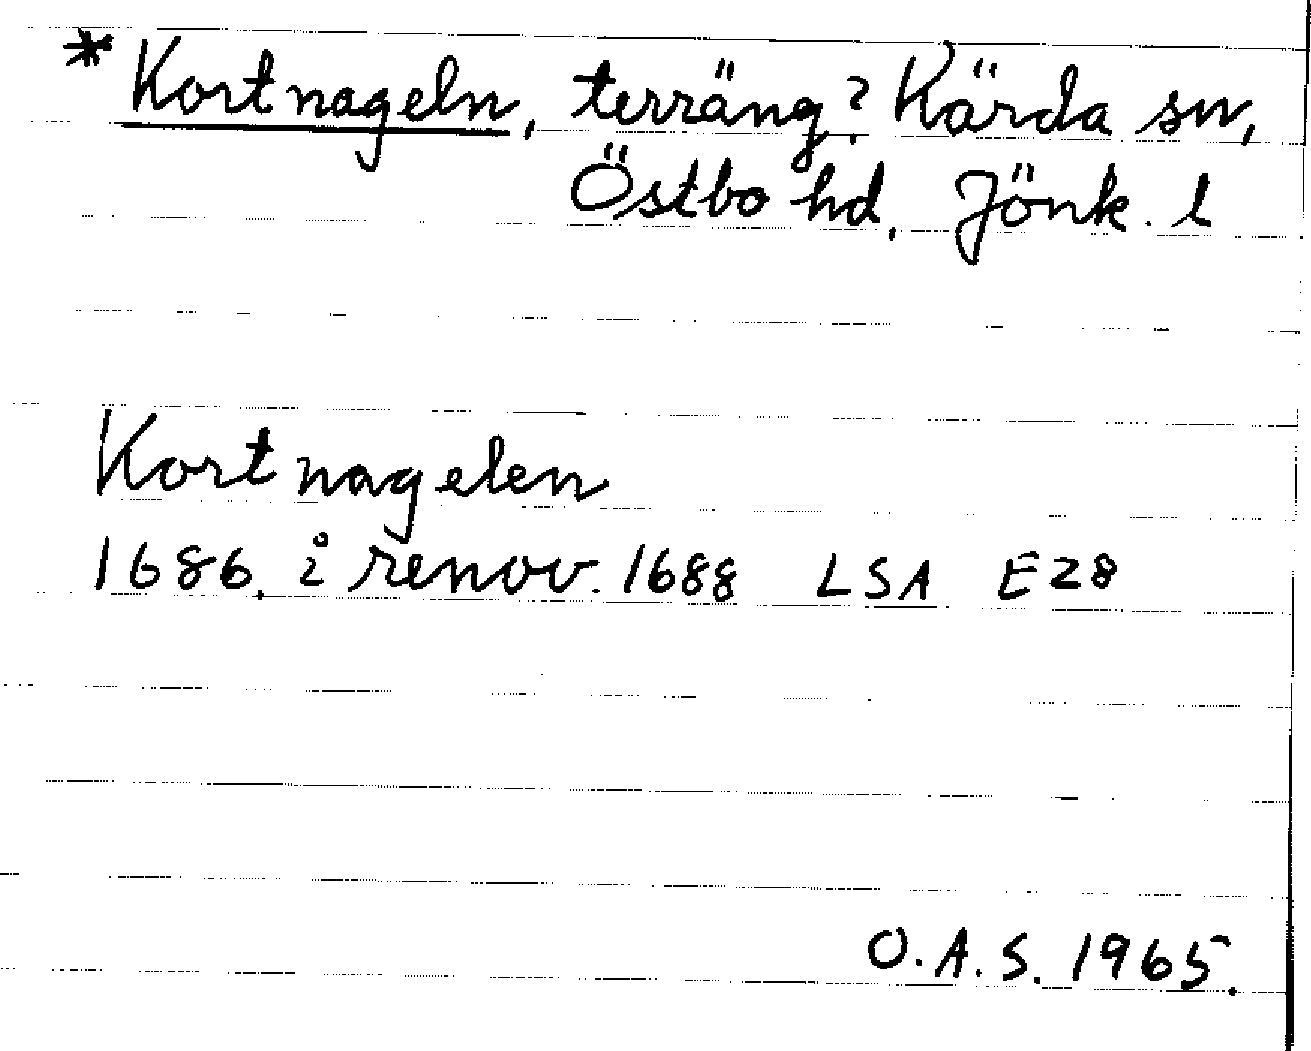 * Kortnageln, terräng? Kärda sn,
Östbo hd, Jönk. l
Kortnagelen
1686, i renov. 1688 LSA E28
O.A.S. 1965.